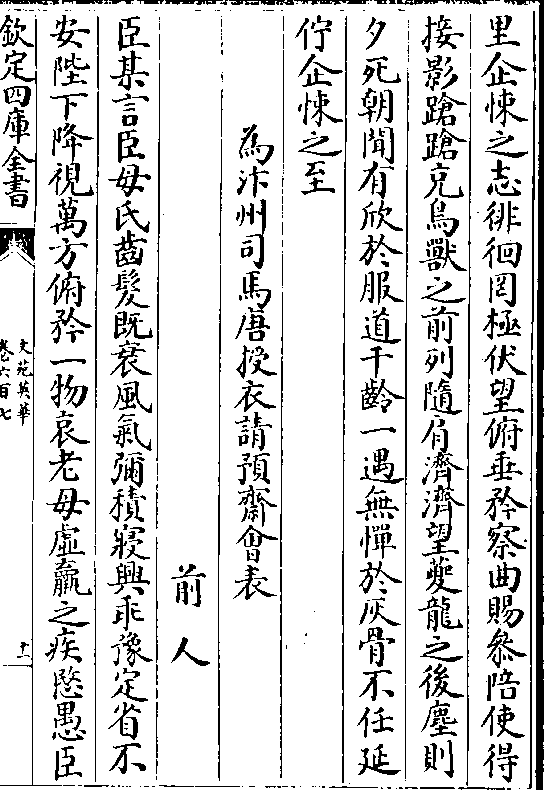 里企悚之志徘徊罔極伏望俯垂矜察曲賜叅陪使得
接影蹌蹌充鳥獸之前列隨肩濟濟望夔龍之後塵則
夕死朝聞有欣於服道千齡一遇無憚於灰骨不任延
佇企悚之至
為汴州司馬唐授衣請預齋會表
前人
臣某言臣母氏齒髮既衰風氣彌積寢興乖豫定省不
安陛下降視萬方俯矜一物哀老母虛羸之疾愍愚臣
欽定四庫全書
文苑英華
卷六百七
十一